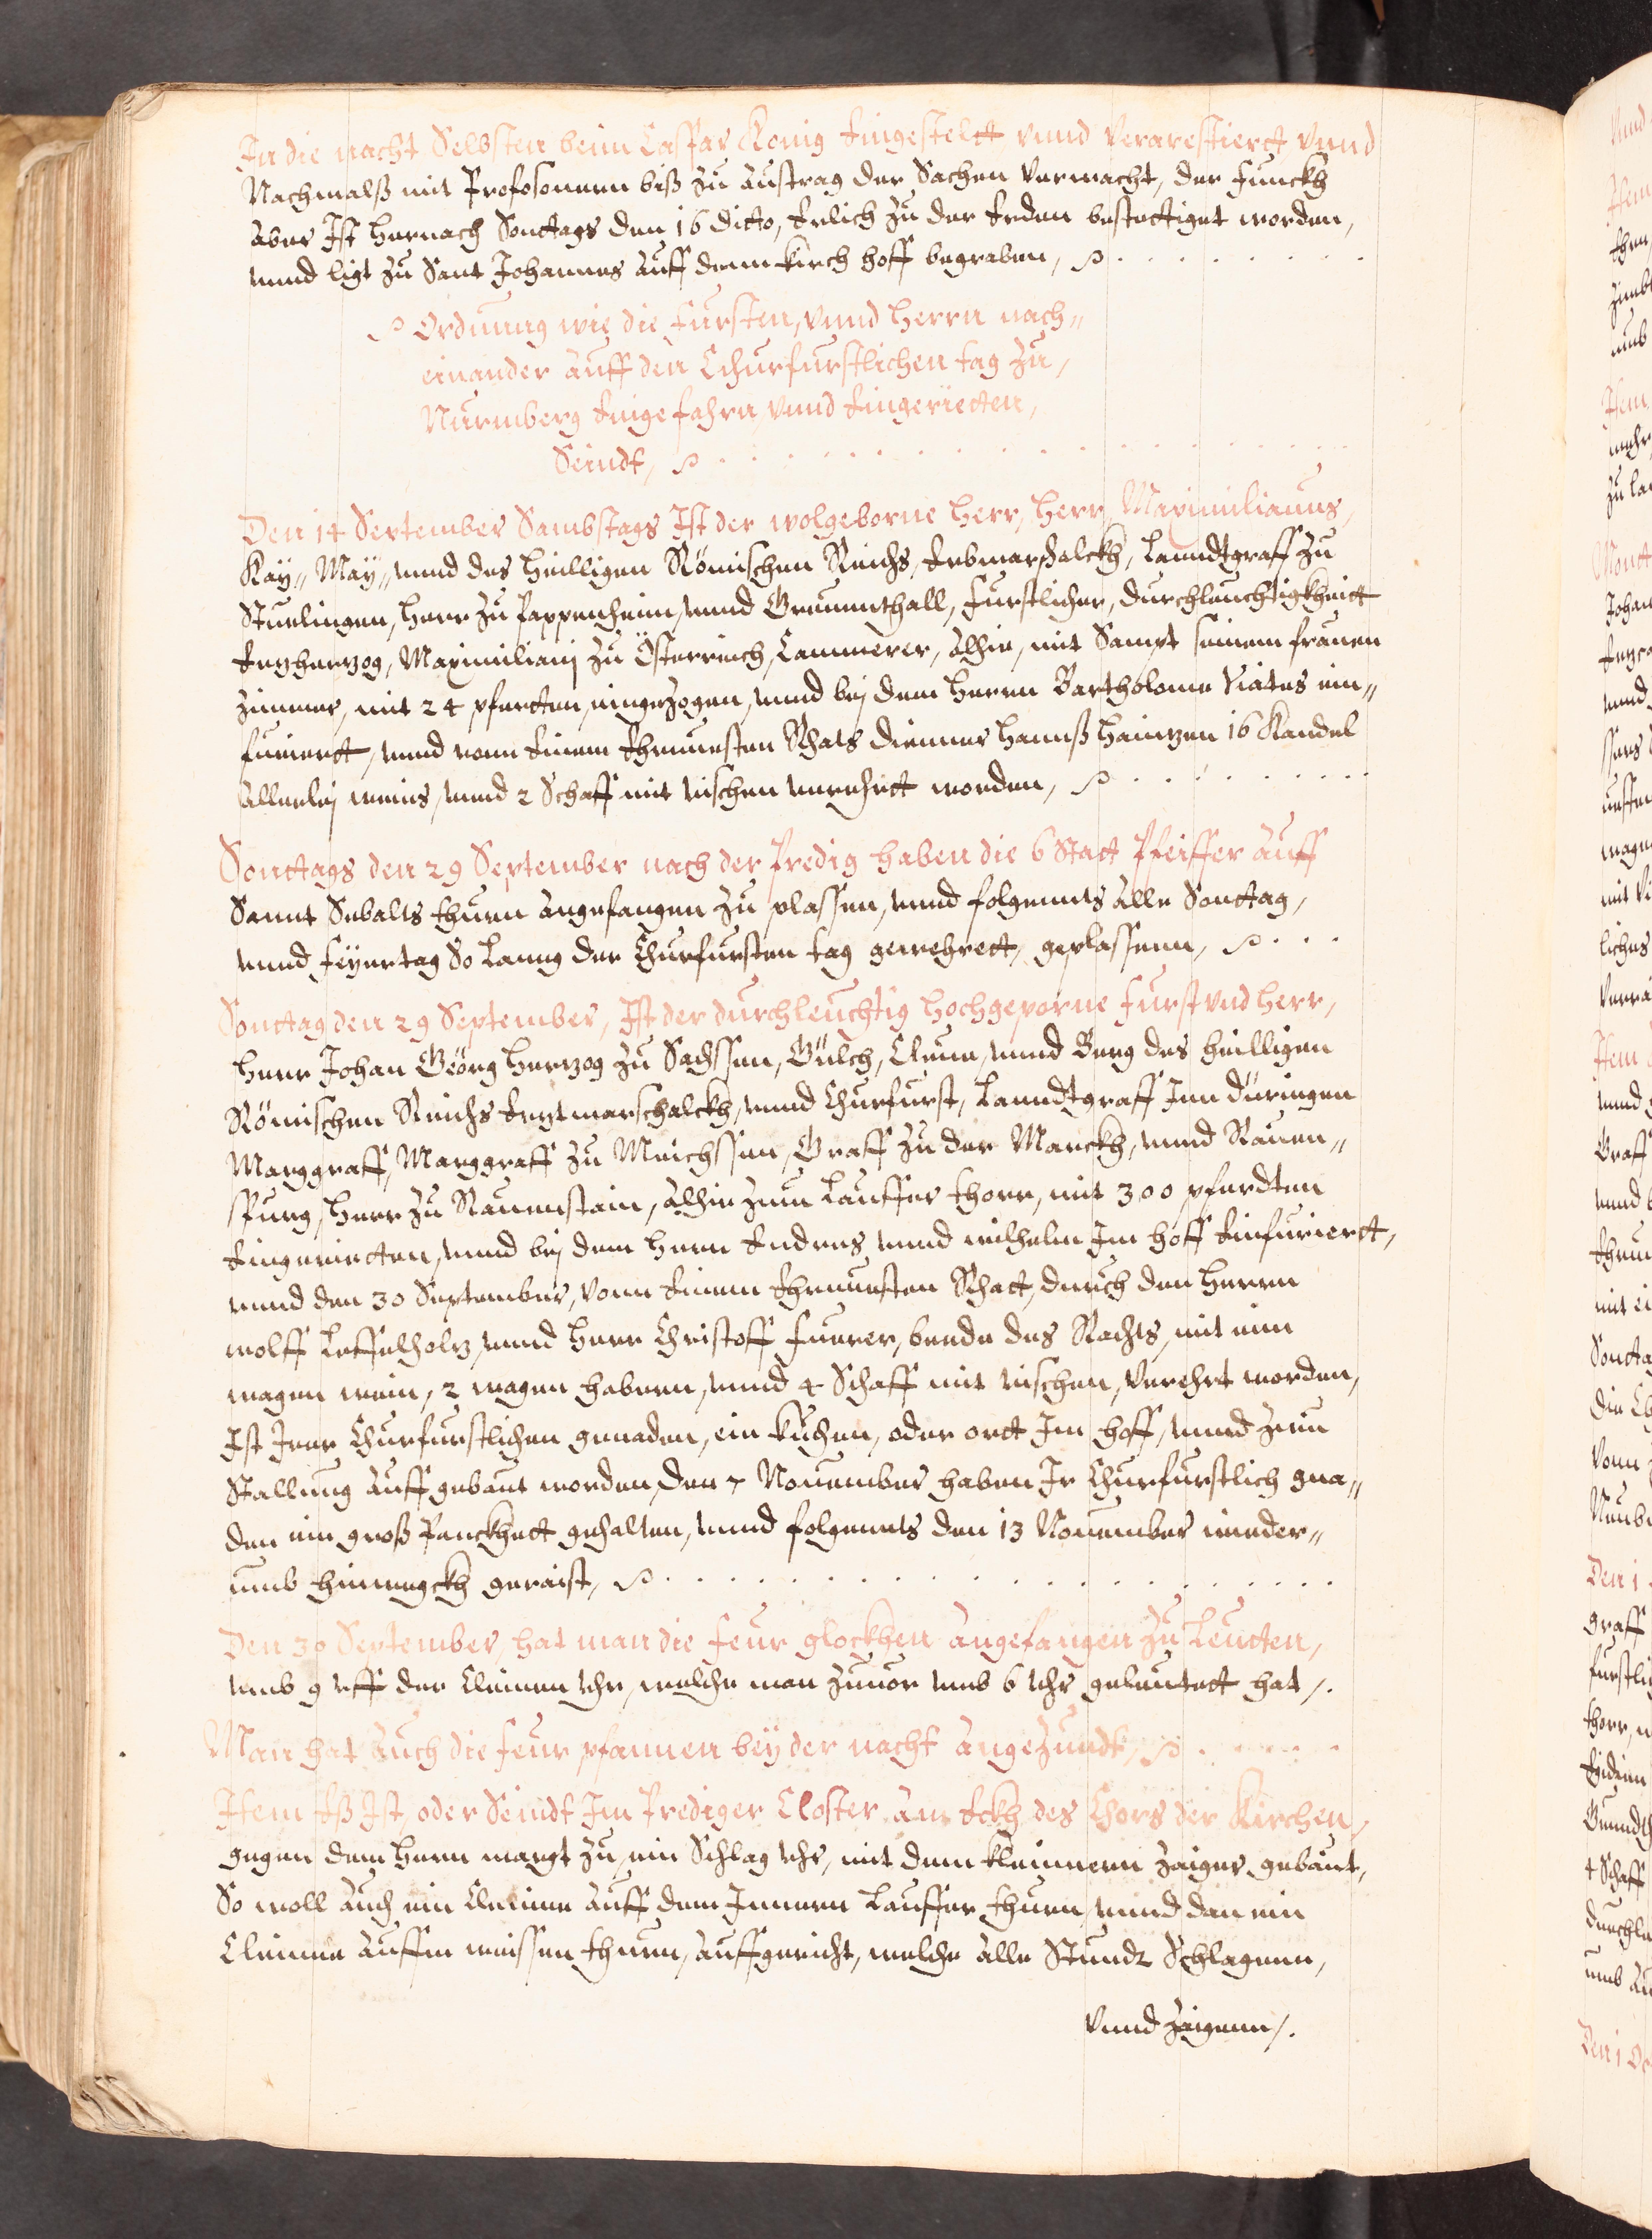 In die nacht Selbsten beim Casspar König Eingestelt vnnd Verarestierct vnnd
Nachmalß mit Profosonnen biß zu Austrag der Sachen Verwacht, der Funckh
aber Ist hernach Sonttags den 16 ditto, Erlich zu der Erden bestettiget worden,
vnnd ligt zu Sant Johannes auff dem kirch hoff begraben,
Ordnung wie die Fursten, vnnd Herrn nach„
einander auff den Churfurstlichen tag zu,
Nurmberg Einge fahrn, vnnd Eingerietten,
Seindt,
Den 14 September Sambstags Ist der wolgeborne Herr, Herr, Maximilianus,
Kay„ May„ vnnd des Heilligen Römischen Reichs, Erbmarschalckh, Lanndtgraff zu
Stuelingen, Herr zu Pappenheim, vnnd Greuenthall, Furstlicher, durchleuchtigkheitt
Ertzhertzog, Maximilianj zu Österreich, Cammerer, Alhie, mit Sampt seinem frauen
zimmer, mit 24 pferdten, eingezogen, vnnd bej dem Herrn Bartholome Viatis ein„
furiertt, vnnd vonn Einem Ehrnuesten Rhats dienner Hannß Haintzen 16 Kandel
Allerlej weins, vnnd 2 Schaff mit vischen verehrtt worden,
Sonttags den 29 September nach der Predig haben die 6 Statt Pfeiffer auff
Sannt Sebalts thurn angefangen zu plassen, vnnd folgennts alle Sonttag,
vnnd Feyertag So Lanng der Churfursten tag gewehrett, geplassenn,
Sonttag den 29 September, Ist der durchleuchtig Hochgeporne Furst vnd Herr,
Herr Johan Geörg Hertzog zu Sachssen, Gülch, Cleue, vnnd Berg des Heilligen
Römischen Reichs Ertzmarschalckh, vnnd Churfurst, Lanndtgraff Inn Düringen
Marggraff, Marggraff zu Meichssen, Graff zu der Marckh, vnnd Rauen„
spurg, Herr zu Rauenstain, Alhie zum Lauffer thorr, mit 300 pferdten
Eingerietten, vnnd bej dem Herrn Endres vnnd wilhelm Im hoff Einfuriertt,
vnnd den 30 September, vonn Einem Ehrnuesten Rhatt, durch den Herrn
wolff Löffelholtz, vnnd Herr Christoff Fuerer, beede des Rahts, mit eim
wagen wein, 2 wagen habern, vnnd 4 Schaff mit vischen, Verehrt worden,
Ist Irer Churfurstlichen genaden, ein kuchen, oder ortt Im hoff, vnnd zum
Stallung auff gebaut worden, den 7 Nouember haben Ir Churfurstlich gna„
den ein groß Panckhett gehalten, vnnd folgennts den 13 Nouember wieder„
umb hinwegckh geraist,
Den 30 September, hat man die feur glockhen angefangen zu Leutten,
vmb 9 vff der Cleinen vhr, welche man zuuor vmb 6 vhr geleutett hat /.
Man hat auch die feur pfannen bey der nacht angezundt,
Item Eß Ist, oder Seindt Im Prediger Closter, am Eckh des Chors der Kirchen,
gegen dem Herrn margt zu, ein Schlag vhr, mit dem kleinnern Zaiger gebaut,
So woll auch ein Cleinne auff dem Innern Lauffer thurn, vnnd dan ein
Cleinne auffm weissen thurn, auffgericht, welche alle Stundt Schlagenn,
Vnnd Zaigenn /.